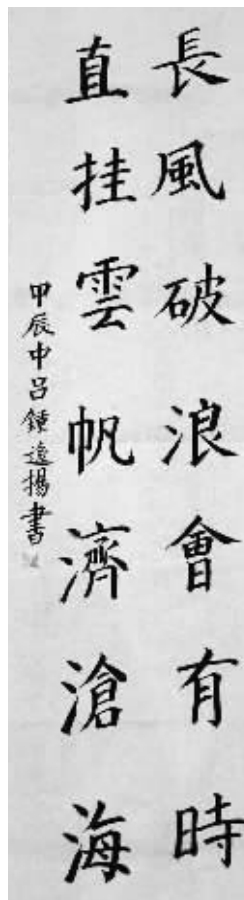 長風破浪會有時
直挂雲帆濟滄海
甲辰中呂鍾逸揚書